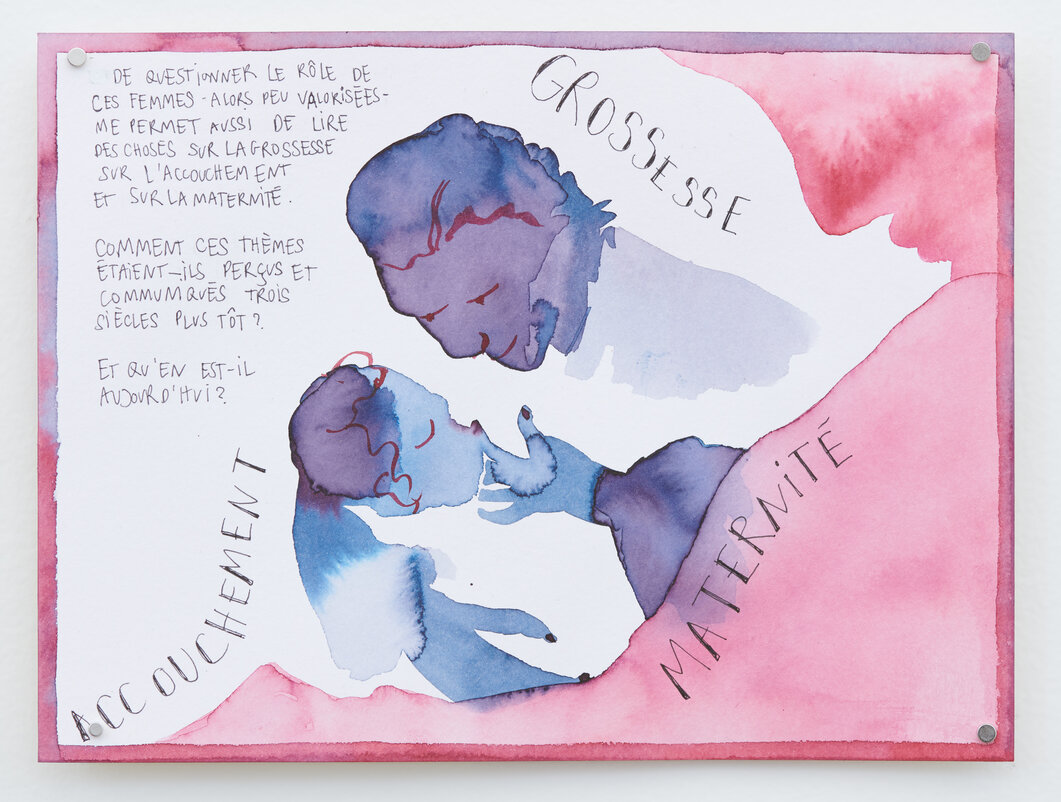 DE QUESTIONNER LE RÔLE DE
CES FEMMES - ALORS PEU VALORISÉES -
ME PERMET AUSSI DE LIRE
DES CHOSES SUR LA GROSSESSE
SUR L'ACCOUCHEMENT
ET SUR LA MATERNITÉ.
COMMENT CES THÈMES
ÉTAIENT-ILS PERÇUS ET
COMMUNIQUÉS TROIS
SIÈCLES PLUS TÔT ?
ET QU'EN EST-IL
AUJOURD'HUI ?
GROSSESSE
ACCOUCHEMENT
MATERNITÉ